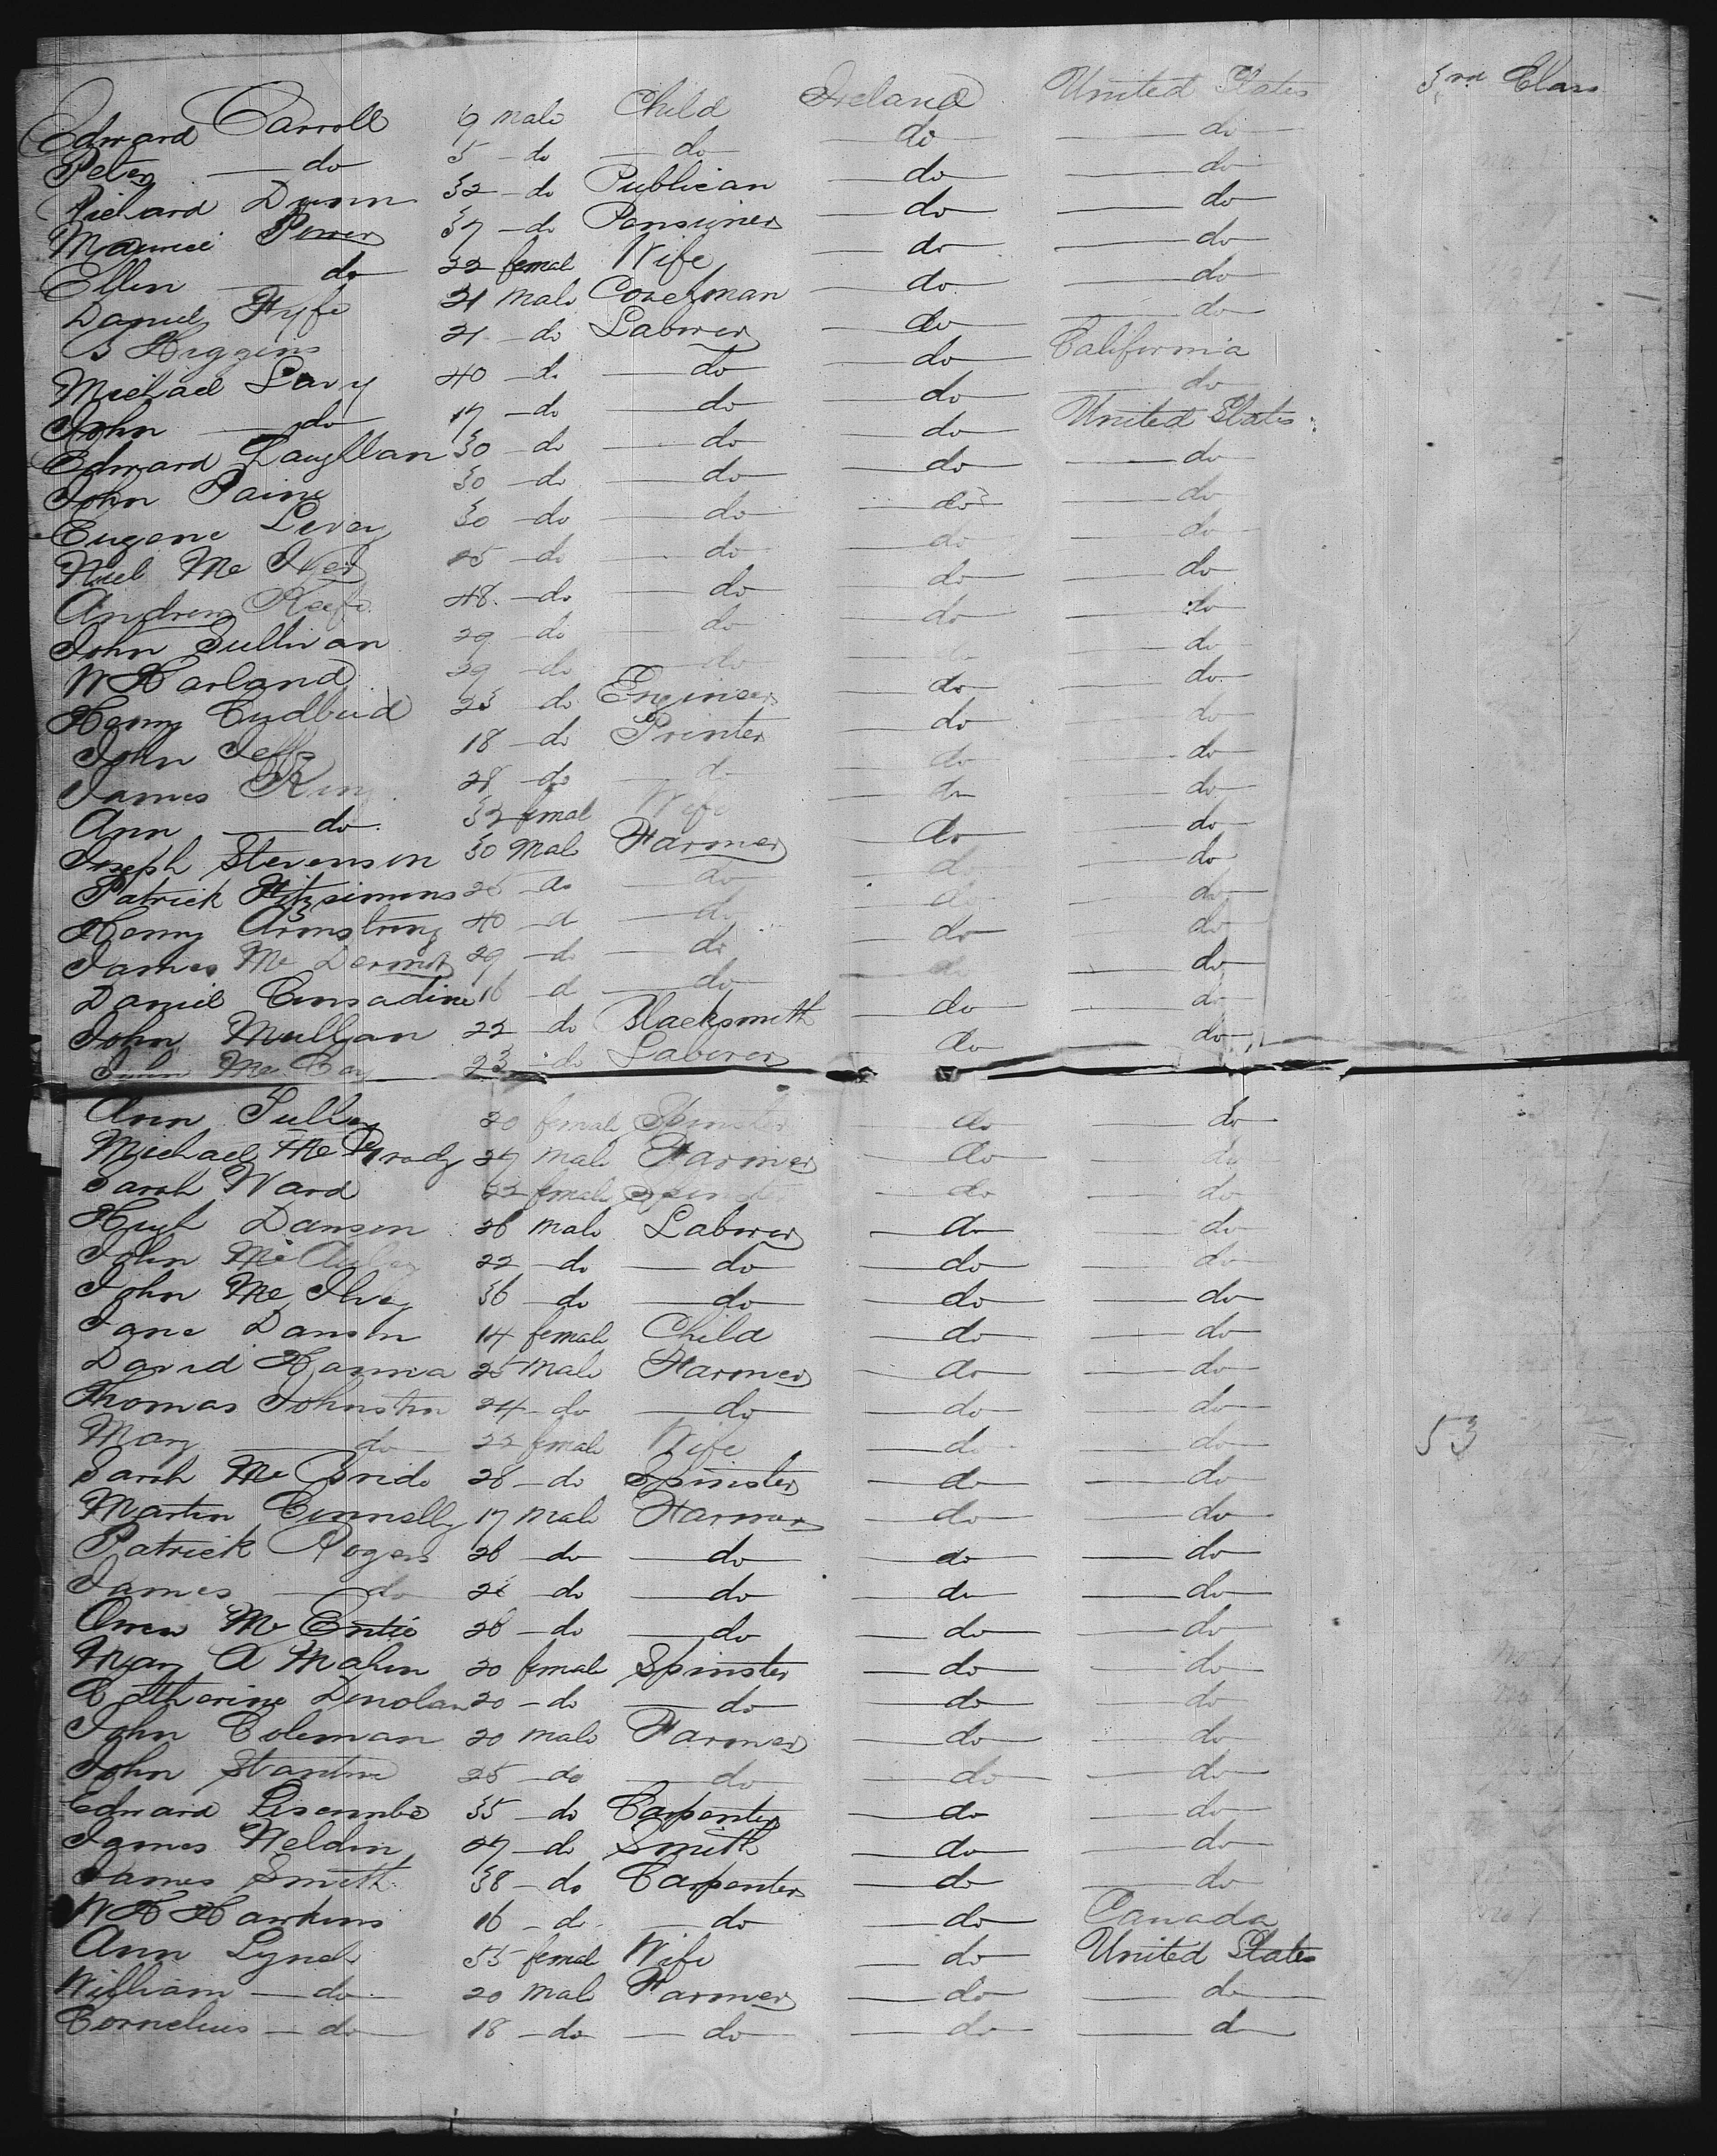 Edward Carroll 9 male Child Ireland United States 3rd Class
Peter do 5 do do do do
Richard Dunn 32 do Publican do do
Maurice Power 37 do Pensioner do do
Ellen do 22 female Wife do do
Daniel Fyfe 21 male Coachman do do
B Higgins 21 do Laborer do do
Michael Lavy 40 do do do California
John do 17 do do do do
Edward Laughlan 30 do do do United States
John Paine 30 do do do do
Eugene Levey 30 do do do do
Niel Mc 25 do do do do
Andrew Keefe 48 do do do do
John Sullivan 29 do do do do
W Harland 29 do do do do
Henry Cudbird 23 do Engineer do do
John Jeffs 18 do Printer do do
James King 28 do do do do
Ann do 32 female Wife do do
Joseph Stevenson 30 Male Farmer do do
Patrick Fitzsimons 25 do do do do
Henry Armstrong 40 d do do do
James Mc Dermot 29 do do do do
Daniel Consadine 16 d do do do
John Mullgan 22 do Blacksmith do do
John Mc Cay 23 do Laborer do do
Ann Tulley 20 female Spinster do do
Michael Mc Grady 27 male Farmer do do
Sarah Ward 22 female Spinster do do
Hugh Danson 26 male Laborer do do
John Mc 22 do do do do
John Mc Ilvey 36 do do do do
Jane Danson 14 female Child do do
David Hanna 25 male Farmer do do
Thomas Johnston 24 do do do do
Mary do 22 female Wife do do 53
Sarah Mc Bride 26 do Spinster do do
Martin Connelly 17 male Farmer do do
Patrick Rogers 26 do do do do
James do 26 do do do do
Owen Mc Entie 26 do do do do
Mary A Mahon 20 female Spinster do do
Catherine Donolan 20 do do do do
John Coleman 20 male Farmer do do
John Stanton 25 do do do do
Edward Liscombe 35 do Carpenter do do
James Weldon 27 do Smith do do
James Smith 38 do Carpenter do do
W H Hawkins 16 do do do Canada
Ann Lynch 55 female Wife do United States
William do 20 male Farmer do do
Cornelius do 18 do do do d